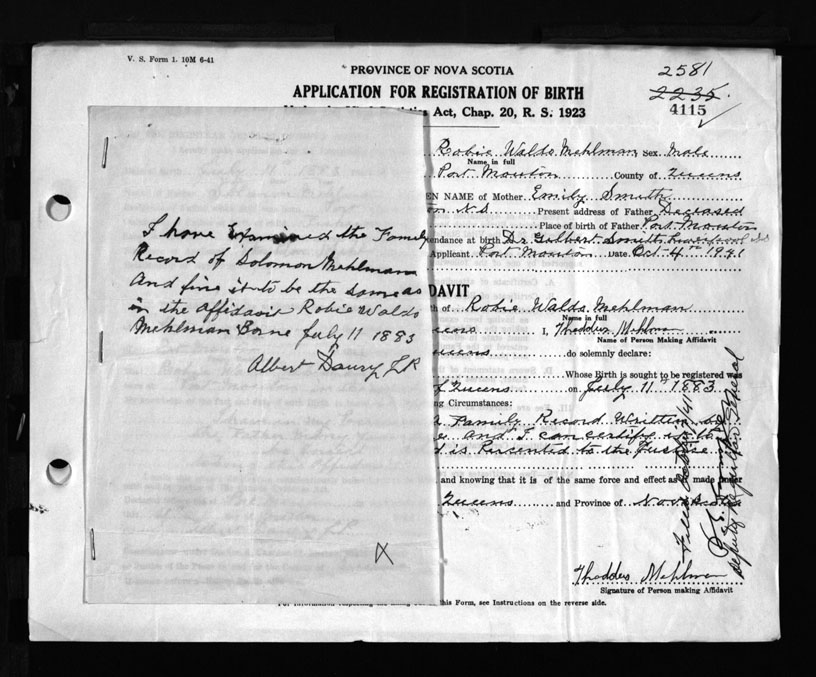 V. S. Form 1. 10M 6-41
PROVINCE OF NOVA SCOTIA
2581
APPLICATION FOR REGISTRATION OF BIRTH
2235
Act, Chap. 20, R. S. 1923
4115
Robie Waldo Mehlman Sex Male
Name in full
Port Mouton County of Queens
EN NAME of Mother Emily Smith
N.S. Present address of Father Deceased
Place of birth of Father Port Mouton
endance at birth Dr Gilbert Smith
Applicant Port Mouton Date Oct 4th 1941
I have Examined the Family
Record of Solomon Mehlman
And fine it to be the same as
in the affidavit Robie Waldo
Mehlman Borne July 11 1883
Albert Daury
X
DAVIT
th of Robie Waldo Mehlman
Name in full
ueens I, Thaddeus Mehlman
Name of Person Making Affidavit
ueens do solemnly declare:
Whose Birth is sought to be registered was
of Queens on July 11th 1883
ng Circumstances:
a Family Record Written
and I can certify
is Percented to the Justice
and knowing that it is of the same force and effect as made under
Queens and Province of Nova Scotia
Thaddeus Mehlman
Signature of Person making Affidavit
this Form, see Instructions on the reverse side.
Filed
Deputy Registrar General